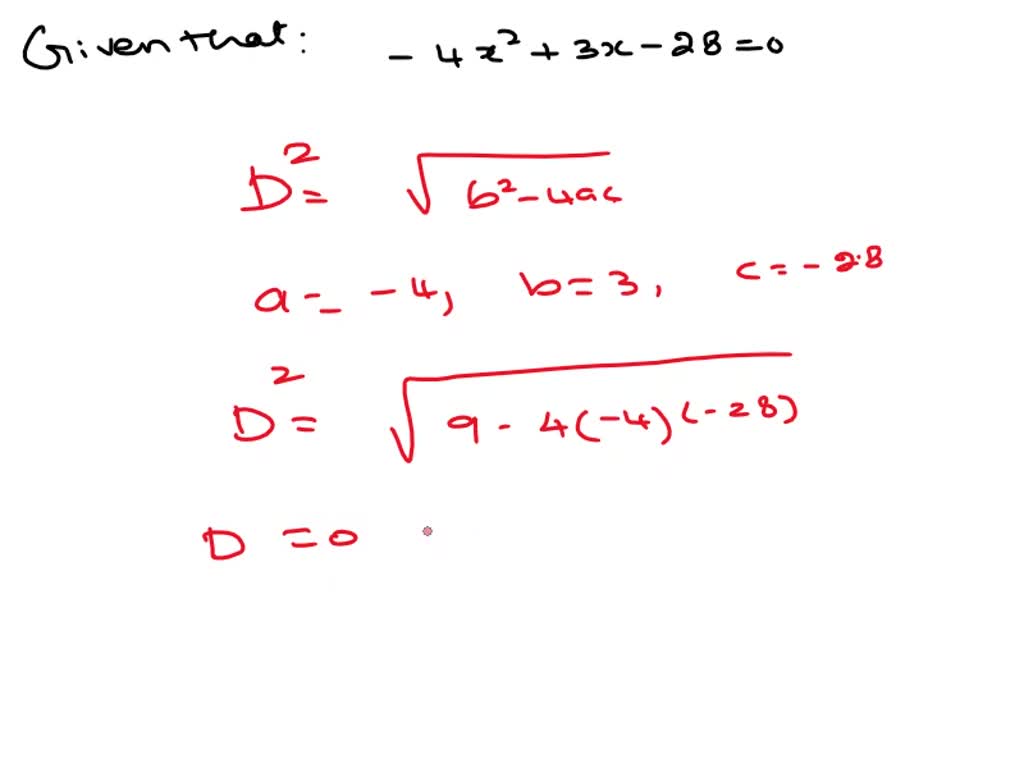 Given that: - 4x² + 3x - 28 = 0
D² = √(b² - 4ac)
a = -4, b = 3, c = - 2.8
D² = √(9 - 4(-4)(-28))
D = 0